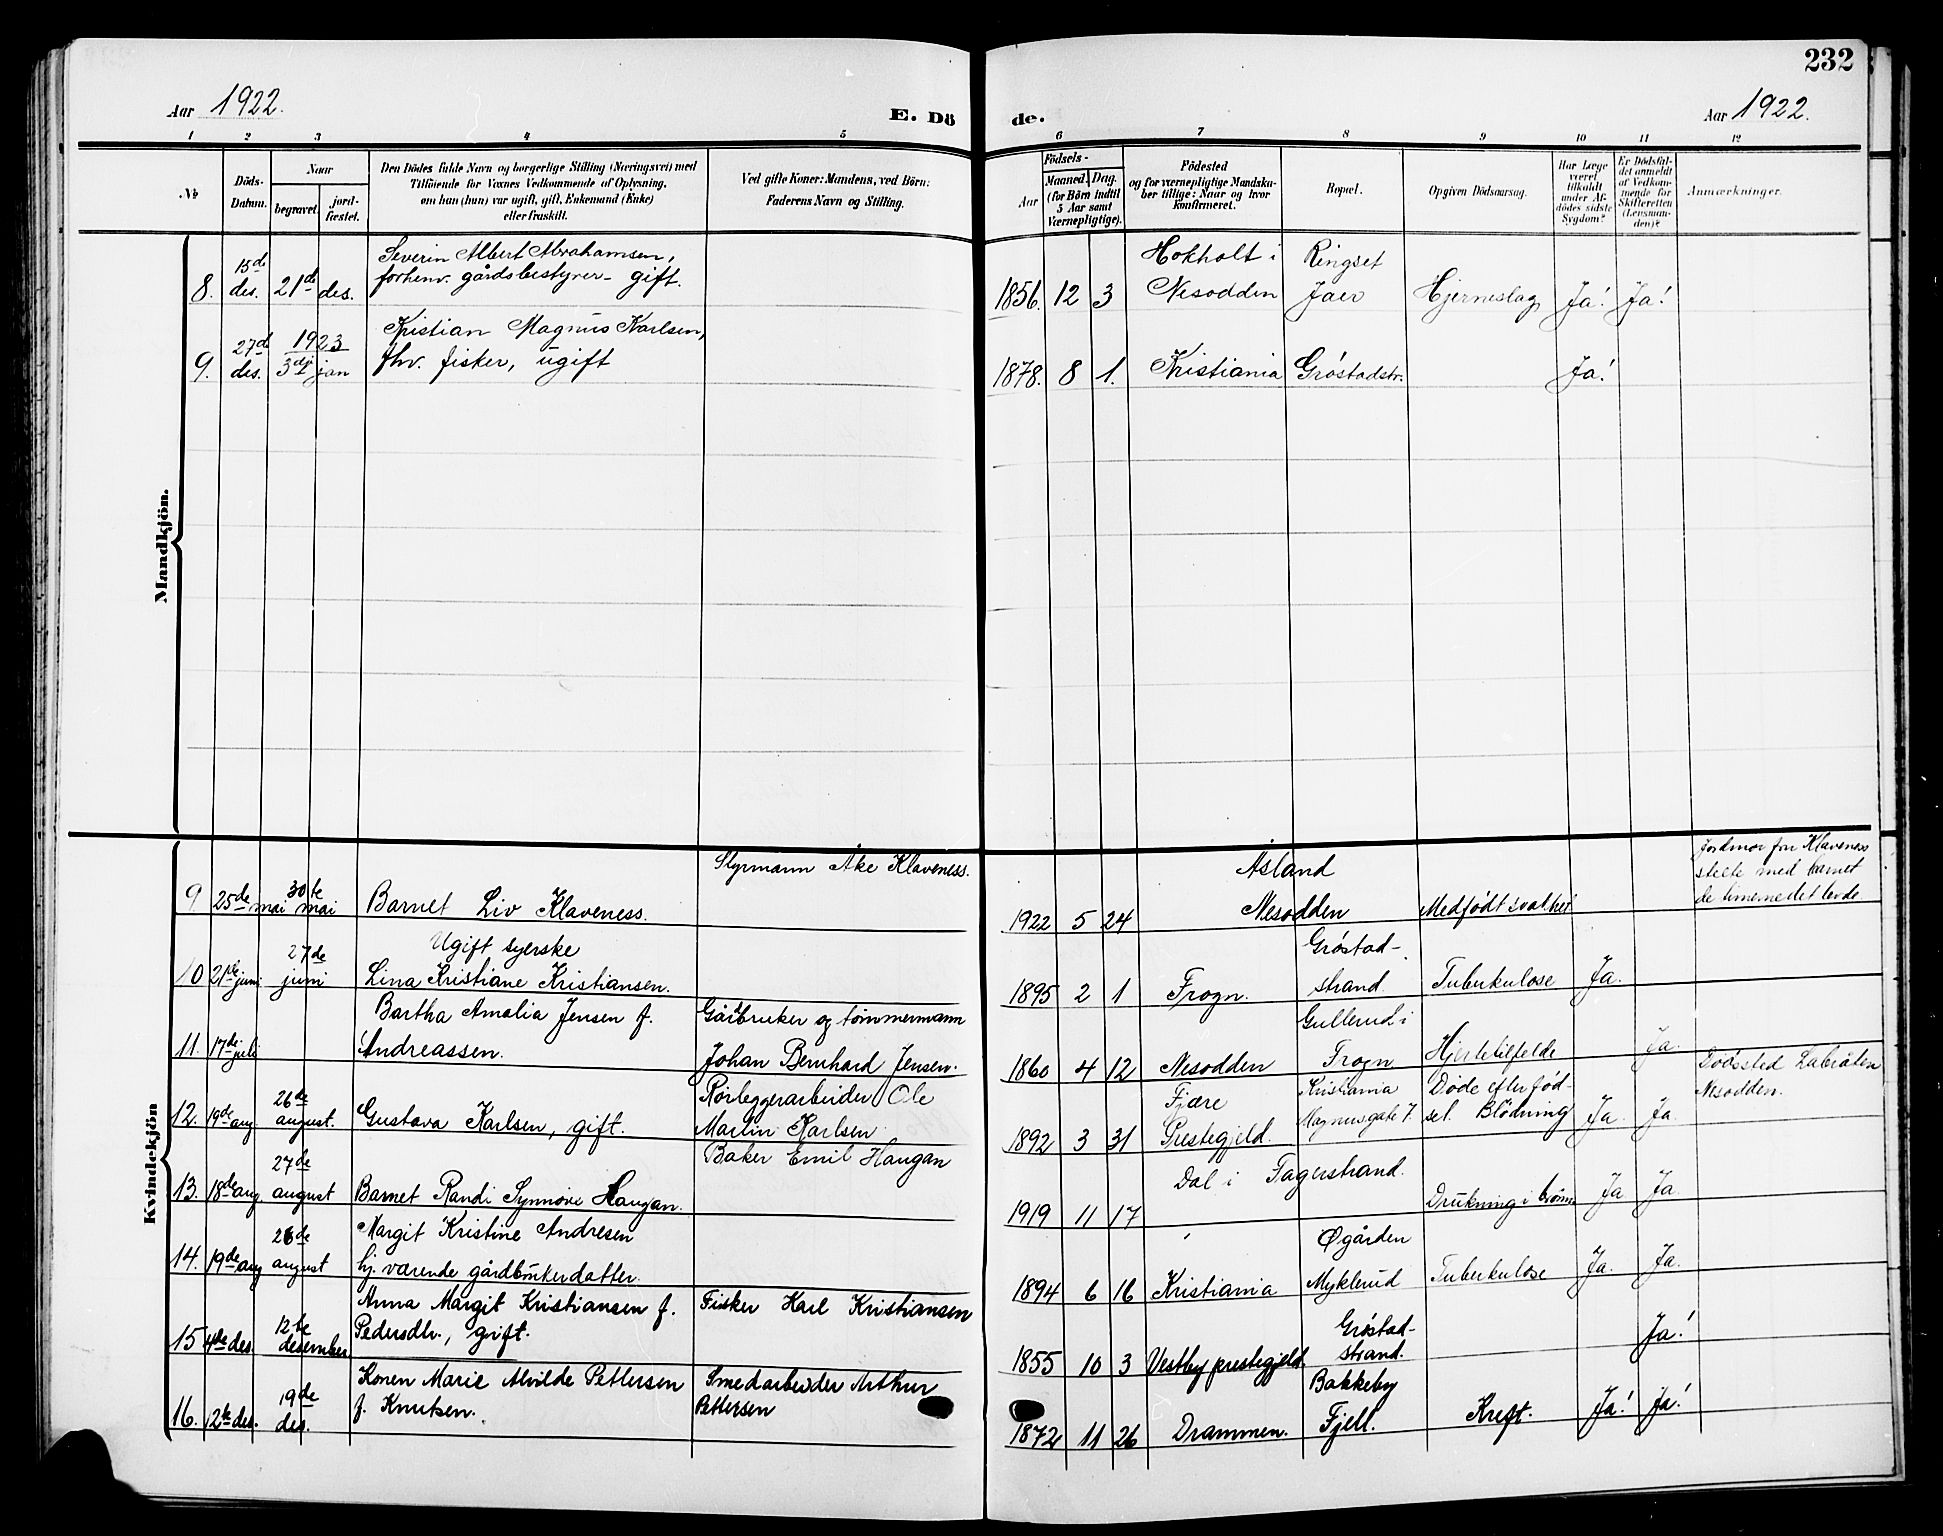 232
Aar 1922.
E. Dö
de.
Aar 1922.
1 2 3 4 5 6 7 8 9 10 11 12
No
Döds-
Datum.
Naar
begravet.
jord-
fæstet.
Den Dödes fulde Navn og borgerlige Stilling (Næringsvei) med
Tilföiende for Voxnes Vedkommende af Oplysning,
om han (hun) var ugift, gift, Enkemand (Enke)
eller fraskilt.
Ved gifte Koner: Mandens, ved Börn:
Faderens Navn og Stilling.
Födsels-
Aar
Maaned. Dag.
(for Börn indtil
5 Aar samt
Værnepligtige).
Födested
og for værnepligtige Mandska-
ber tillige: Naar og hvor
konfirmeret.
Bopæl.
Opgiven Dödsaarsag.
Har Læge
været
tilkaldt
under Af-
dödes sidste
Sygdom?
Er Dödsfal-
det anmeldt
af Vedkom-
mende for
Skifteretten
(Lensman-
den)?
Anmærkninger.
Mandkjön.
8. 15d des. 21de des. Severin Albert Abrahamsen,
forhenv. gårdsbestyrer - gift.
1856. 12 3 Hokholt i
Nesodden
Ringset
Jaer
Hjerneslag Ja! Ja!
9. 27d des. 1923
3dj jan
Kristian Magnus Karlsen,
fhv. fisker, ugift
1878. 8 1. Kristiania Gróstadstr. Ja!
Kvindekjön
9 25de mai 30te mai Barnet Liv Klaveness.
Styrmann Åke Klaveness.
1922 5 24 Åsland
Nesodden
Medfødt svakhet
Jordmor fru Klaveness
stelte med barnet
de timerne det levde
10 21de juni 27de juni Ugift syerske
Lina Kristiane Kristiansen.
1895 2 1 Frogn. Gróstad-
strand.
Tuberkulose Ja.
11. 17de juli Bartha Amalia Jensen f.
Andreassen.
Gårbruker og tömmermann
Johan Bernhard Jensen.
1860 4 12 Nesodden Gullerud i
Frogn
Hjertetilfelde Ja.
Dødssted Labråten
Nesodden.
12. 19de aug 26de august. Gustava Karlsen, gift.
Rørleggerarbeider Ole
Martin Karlsen
1892 3 31 Fjære
Prestegjeld.
Kristiania
Magnusgate 7.
Døde efter fød-
sel. Blödning Ja. Ja.
13. 18de aug 27de august Barnet Randi Synnøve Haugan.
Baker Emil Haugan
1919 11 17 Dal i Fagerstrand.
Drukning i brönn Ja Ja.
14. 19de aug 26de august Margit Kristine Andresen
hj. værende gårdbrukerdatter.
1894 6 16 Kristiania Øgården
Myklerud
Tuberkulose Ja. Ja.
15 4de des. 12te desember Anna Margit Kristiansen f.
Pedersdtr., gift.
Fisker Karl Kristiansen
1855 10 3 Vestby prestegjeld. Gróstad-
strand. Ja!
16. 12te des. 19de des. Konen Marie Alvilde Pettersen
f. Knutsen.
Smedarbeider Arthur
Pettersen
1872 11 26 Drammen. Bakkeby
Fjell.
Kreft. Ja! Ja!